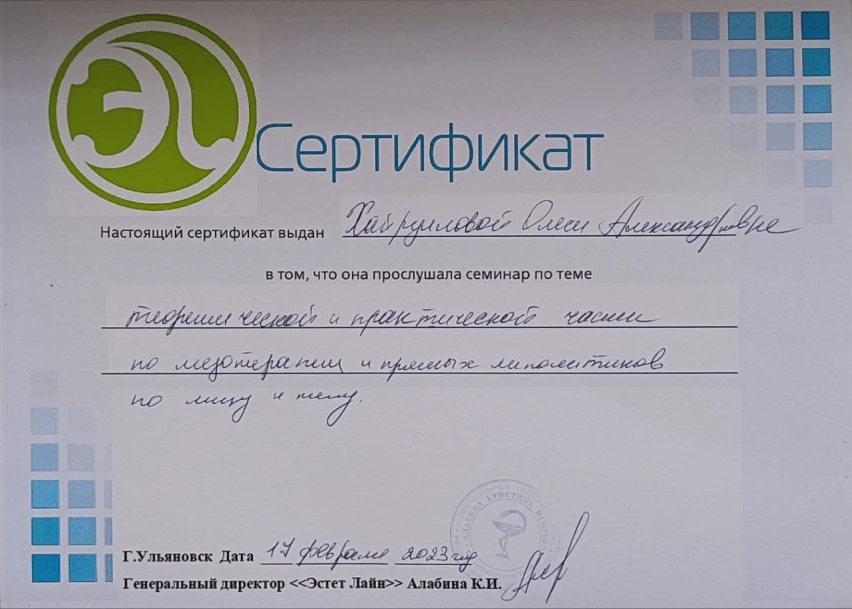 ЭЛ
Сертификат
Настоящий сертификат выдан Хайрулловой Олеси Александровне
в том, что она прослушала семинар по теме
теоретической и практической части
по мезотерапии и прямых липолитиков
по лицу и телу.
АЛАБИНА КРИСТИНА ИГОРЕВНА
Г.Ульяновск Дата 17 февраля 2023 год
Генеральный директор <<Эстет Лайн>> Алабина К.И.